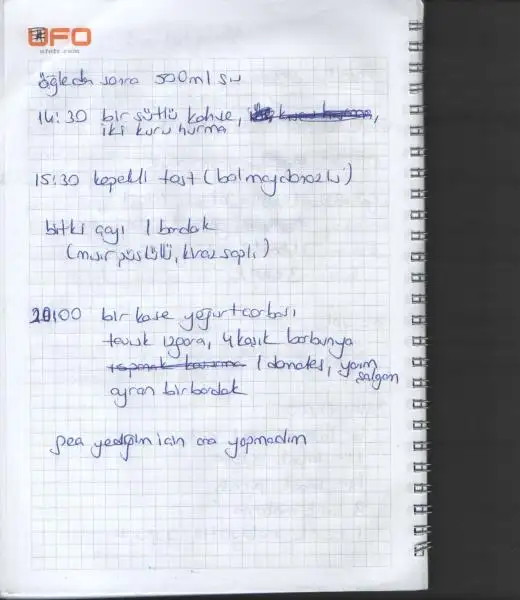 UFO
öğleden sonra 500ml su
14:30 bir sütlü kahve,
iki kuru hurma
15:30 kepekli tost (bol maydonozlu)
bitki çayı 1 bardak
(mısır püsküllü, kiraz saplı)
20:00 bir kase yoğurt corbası
tavuk ızgara, 4 kaşık barbunya
1 domates, yarım
salgam
ayran bir bardak
yediğim icin ara yapmadım